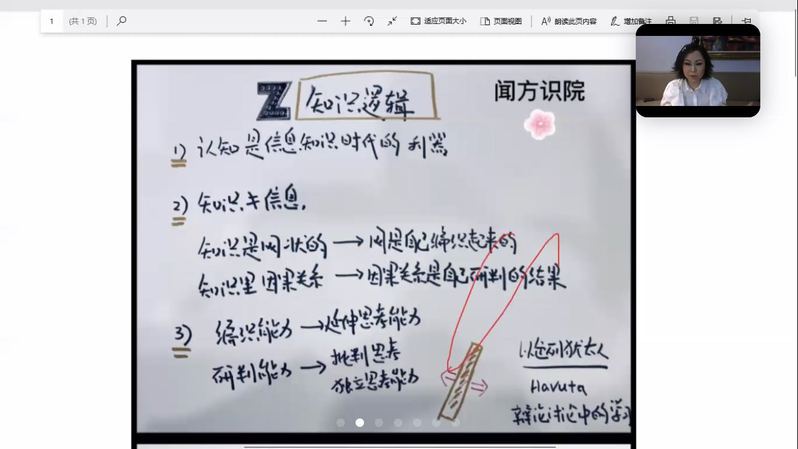 1 (共 1 页) 适应页面大小 页面视图 朗读此页内容 增加备注
Z 知识逻辑
闻方识院
1) 认知是信息知识时代的利器
2) 知识≠信息.
知识是网状的 → 网是自己编织起来的
知识里因果关系 → 因果关系是自己研判的结果
3) 编织能力 → 延伸思考能力
研判能力 → 批判思考
独立思考能力
以色列犹太人
Havuta
辩论讨论中的学习